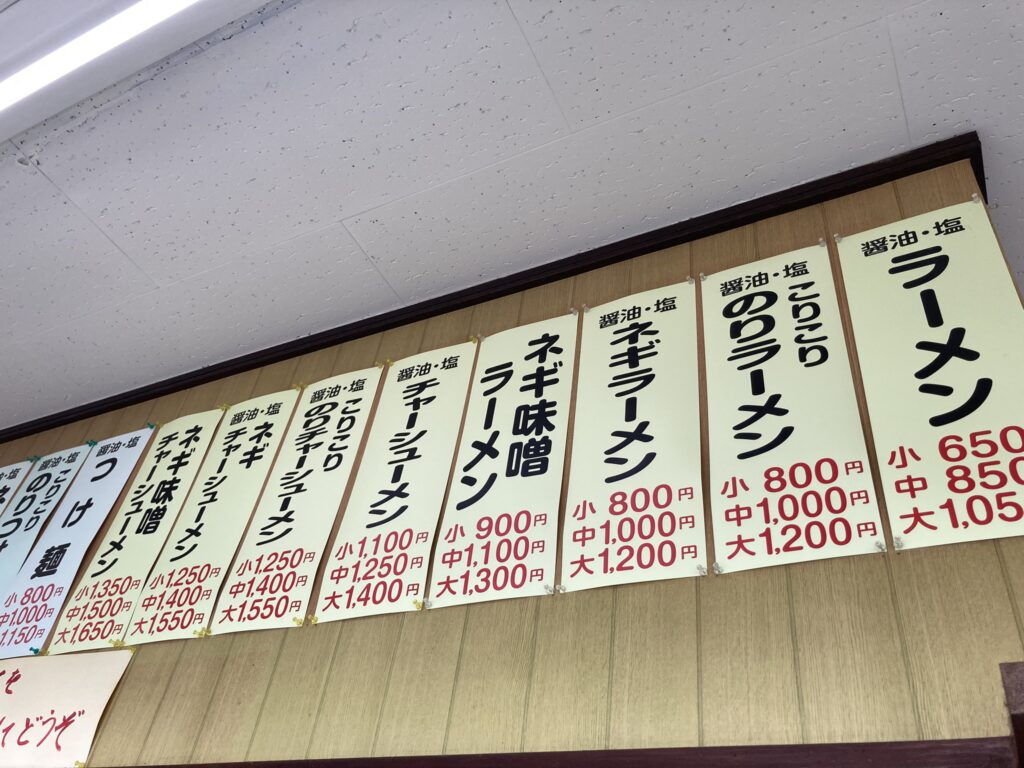 醤油・塩
ラーメン
小 650
中 850
大 1,05
醤油・塩
こりこり
のりラーメン
小 800円
中 1,000円
大 1,200円
醤油・塩
ネギラーメン
小 800円
中 1,000円
大 1,200円
ネギ味噌
ラーメン
小 900円
中 1,100円
大 1,300円
醤油・塩
チャーシューメン
小 1,100円
中 1,250円
大 1,400円
醤油・塩
こりこり
のりチャーシューメン
小 1,250円
中 1,400円
大 1,550円
醤油・塩
ネギ
チャーシューメン
小 1,250円
中 1,400円
大 1,550円
ネギ味噌
チャーシューメン
小 1,350円
中 1,500円
大 1,650円
醤油・塩
つけ麺
小 800円
中 1,000円
1,150円
醤油・塩
こりこり
のりつけ
・塩
を
てどうぞ